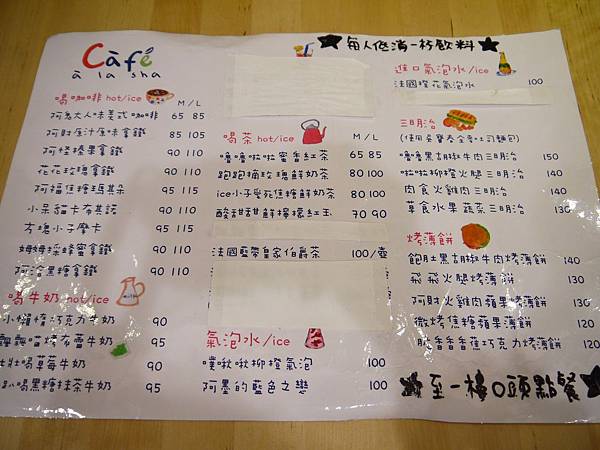 Café
à la sha
★每人低消一杯飲料★
喝咖啡 hot/ice M/L
阿為大人味美式咖啡 65 85
阿財原汁原味拿鐵 85 105
阿怪榛果拿鐵 90 110
花花玫瑰拿鐵 90 110
阿福焦糖瑪其朵 95 115
小呆甜卡布其諾 90 110
方塊小子摩卡 95 115
姆姆採蜂蜜拿鐵 90 110
阿洽黑糖拿鐵 90 110
喝牛奶 hot/ice
小懶惰巧克力牛奶 90
布雷牛奶 95
壯喝草莓牛奶 90
趴喝黑糖抹茶牛奶 95
喝茶 hot/ice M/L
嚕嚕啦啦蜜香紅茶 65 85
跑跑摘玫瑰鮮奶茶 80 100
ice小子愛死焦糖鮮奶茶 80 100
酸甜甜鮮檸檬紅玉 70 90
法國藍帶皇家伯爵茶 100/壺
氣泡水/ice
噗啾啾柳橙氣泡 100
阿墨的藍色之戀 100
進口氣泡水/ice
法國橙花氣泡水 100
三明治
嚕嚕黑胡椒牛肉三明治 150
啦啦柳橙火腿三明治 140
肉食火雞肉三明治 140
草食水果蔬菜三明治 130
烤薄餅
飽肚黑胡椒牛肉烤薄餅 140
飛飛火腿烤薄餅 130
阿財火雞肉蘋果烤薄餅 130
微烤焦糖蘋果薄餅 120
香香香蕉巧克力烤薄餅 120
★至一樓口頭點餐★